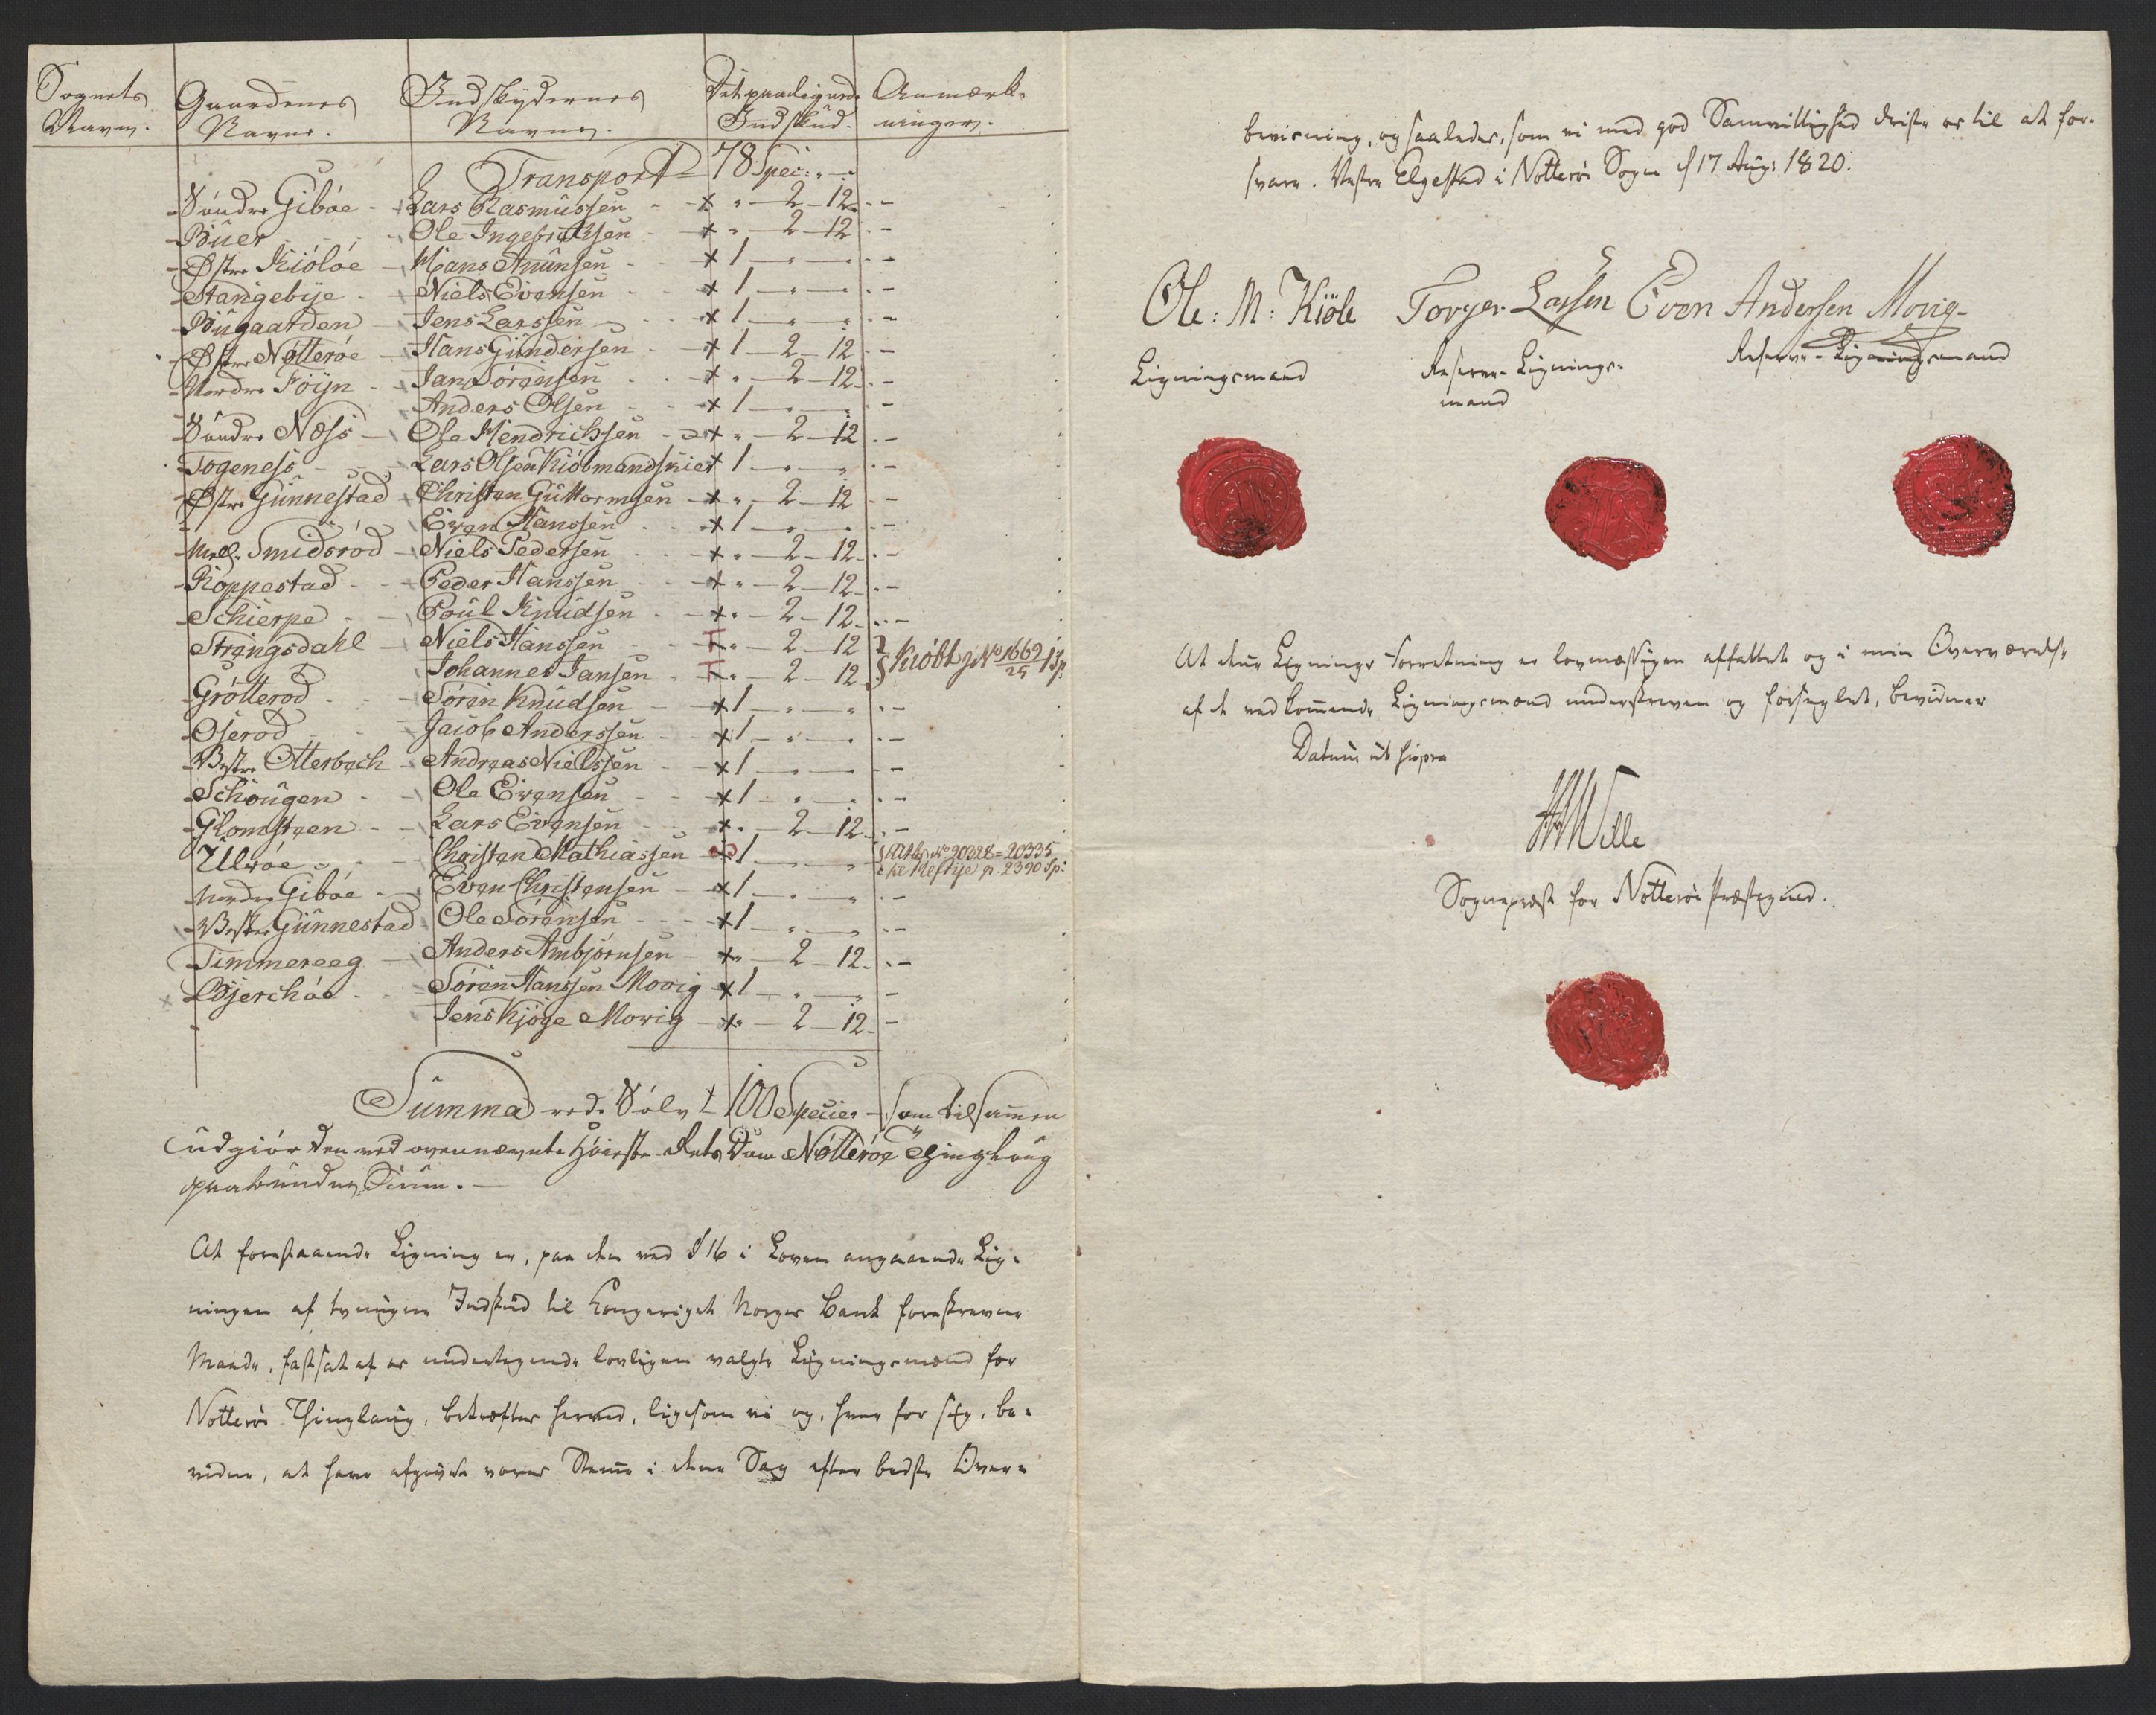 Sognets Navn. Gaardenes Navne. Indskydernes Navne. Det paalignede Indskud. Anmærkninger.
Transport 78 Spec: " -
Søndre Gibøe - Lars Rasmussen - x " - 2 - 12 -
Buer - Ole Ingebretsen - x " - 2 - 12 -
Østre Kiøløe - Hans Anunsen - x 1 - " - " -
Stangebye - Niels Evensen - x 1 - " - " -
Bugaarden - Jens Larssen - x 1 - " - " -
Østre Nøtterøe - Hans Gundersen - x 1 - 2 - 12 -
Nordre Föyn - Jan Sørensen - x " - 2 - 12 -
Anders Olsen - x 1 - " - " -
Søndre Næss - Ole Hendrichsen - x " - 2 - 12 -
Togeness - Lars Olsen Kiøbmandskier x 1 - " - " -
Østre Gunnestad - Christen Guttormsen - x " - 2 - 12 -
" Even Hanssen - x 1 - " - " -
Mell. Smidsrød - Niels Pedersen - x " - 2 - 12 -
Roppestad - Peder Hanssen - x " - 2 - 12 -
Schierpe - Poul Knudsen - x " - 2 - 12 -
Strengsdahl - Niels Hanssen - x " - 2 - 12
Johannes Jansen - x " - 2 - 12 } Kiøbt No 1669/25 1 Sp.
Grøtterød - Søren Knudsen - x 1 - " - " -
Oserød - Jacob Anderssen - x 1 - " - " -
Vestre Otterbech - Andreas Nielssen - x 1 - " - " -
Schougen - Ole Evensen - x 1 - " - " -
Glomsteen - Lars Evensen - x " - 2 - 12 -
Ulvøe - Christen Mathiassen - x 1 - " - " No 20328 = 20335
Heftye p. 2390 Sp:
Nordre Gibøe - Even Christensen - x 1 - " - " -
Vestre Gunnestad Ole Sørensen - x 1 - " - " -
Timmereeg - Anders Ambjørnsen - x " - 2 - 12 -
Bjerchøe - Søren Hanssen Movig - x 1 - " - " -
" Jens Kjøge Movig - x " - 2 - 12 -
Summa rede Sølv 100 Species - som tilsammen
udgiør den ved ovennævnte Høieste Rets Dom Nøtterøe Thinglaug
paabundne Sum. -
At forestaaende Ligning er, paa den ved § 16 i Loven angaaende Lig-
ningen af tvungne Indskud til Kongeriget Norges Bank foreskrevne
Maade, fastsat af os undertegnede lovligen valgte Ligningsmænd for
Nøtterøe Thinglaug, bekræftes herved, ligesom vi og, hver for sig, be-
vidner, at have afgivet vores Stemme i denne Sag efter bedste Over-
beviisning, og saaledes, som vi med god Samvittighed driste os til at for-
svare. Vestre Elgestad i Nøtterøe Sogn d 17 Aug: 1820.
Ole: M: Kiöle Torger Larsen Even Andersen Movig
Ligningsmand Reserve-Lignings-
mand Reserve-Ligningsmand
At denne Lignings Forretning er lovmæssigen affattet og i min Overværelse
af de vedkommende Ligningsmænd underskreven og forseglet, bevidner
Datum ut supra
Wille
Sognepræst for Nøtterøe Præstegield.